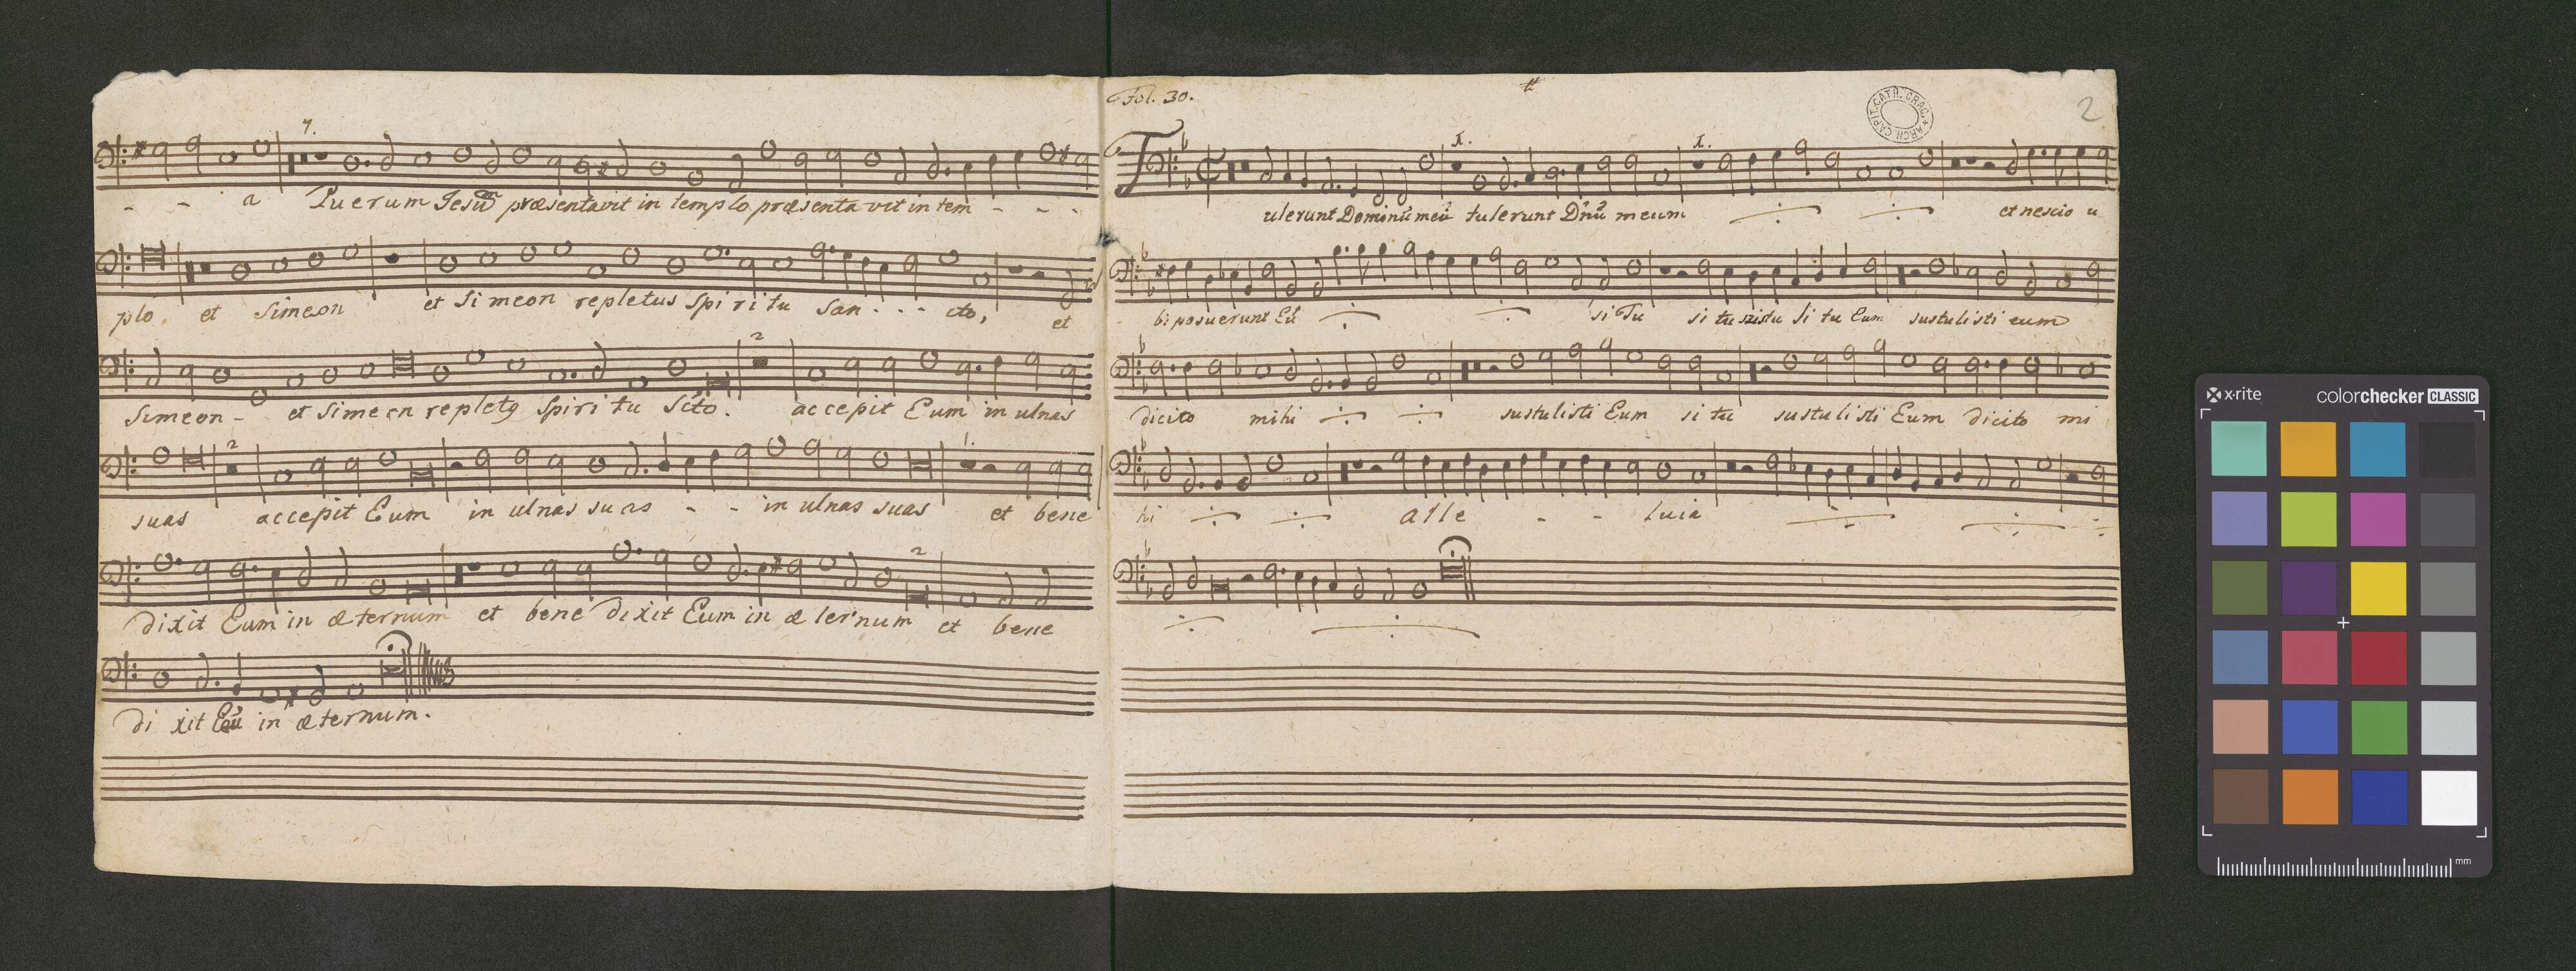 7.
- - a Puerum Jesū præsentavit in templo præsenta vit in tem - - -
plo, et Simeon et Simeon repletus Spiritu San - - - cto, et
2
Simeon - et Simeon repletꝯ Spiritu Scto. accepit Eum in ulnas
2 1.
suas accepit Eum in ulnas suas - - in ulnas suas et bene
2
dixit Eum in æternum et bene dixit Eum in æternum et bene
di xit Eū in æternum.
Fol. 30.
2
ARCH. CAPIT. CATH. CRAC.
1. 1.
Tulerunt Dominū meū tulerunt Dnū meum et nescio u
bi posuerunt Eū si Tu si tu si tu si tu Eum sustulisti eum
dicito mihi sustulisti Eum si tu sustulisti Eum dicito mi
1.
hi alle - - luia
x-rite colorchecker CLASSIC
mm